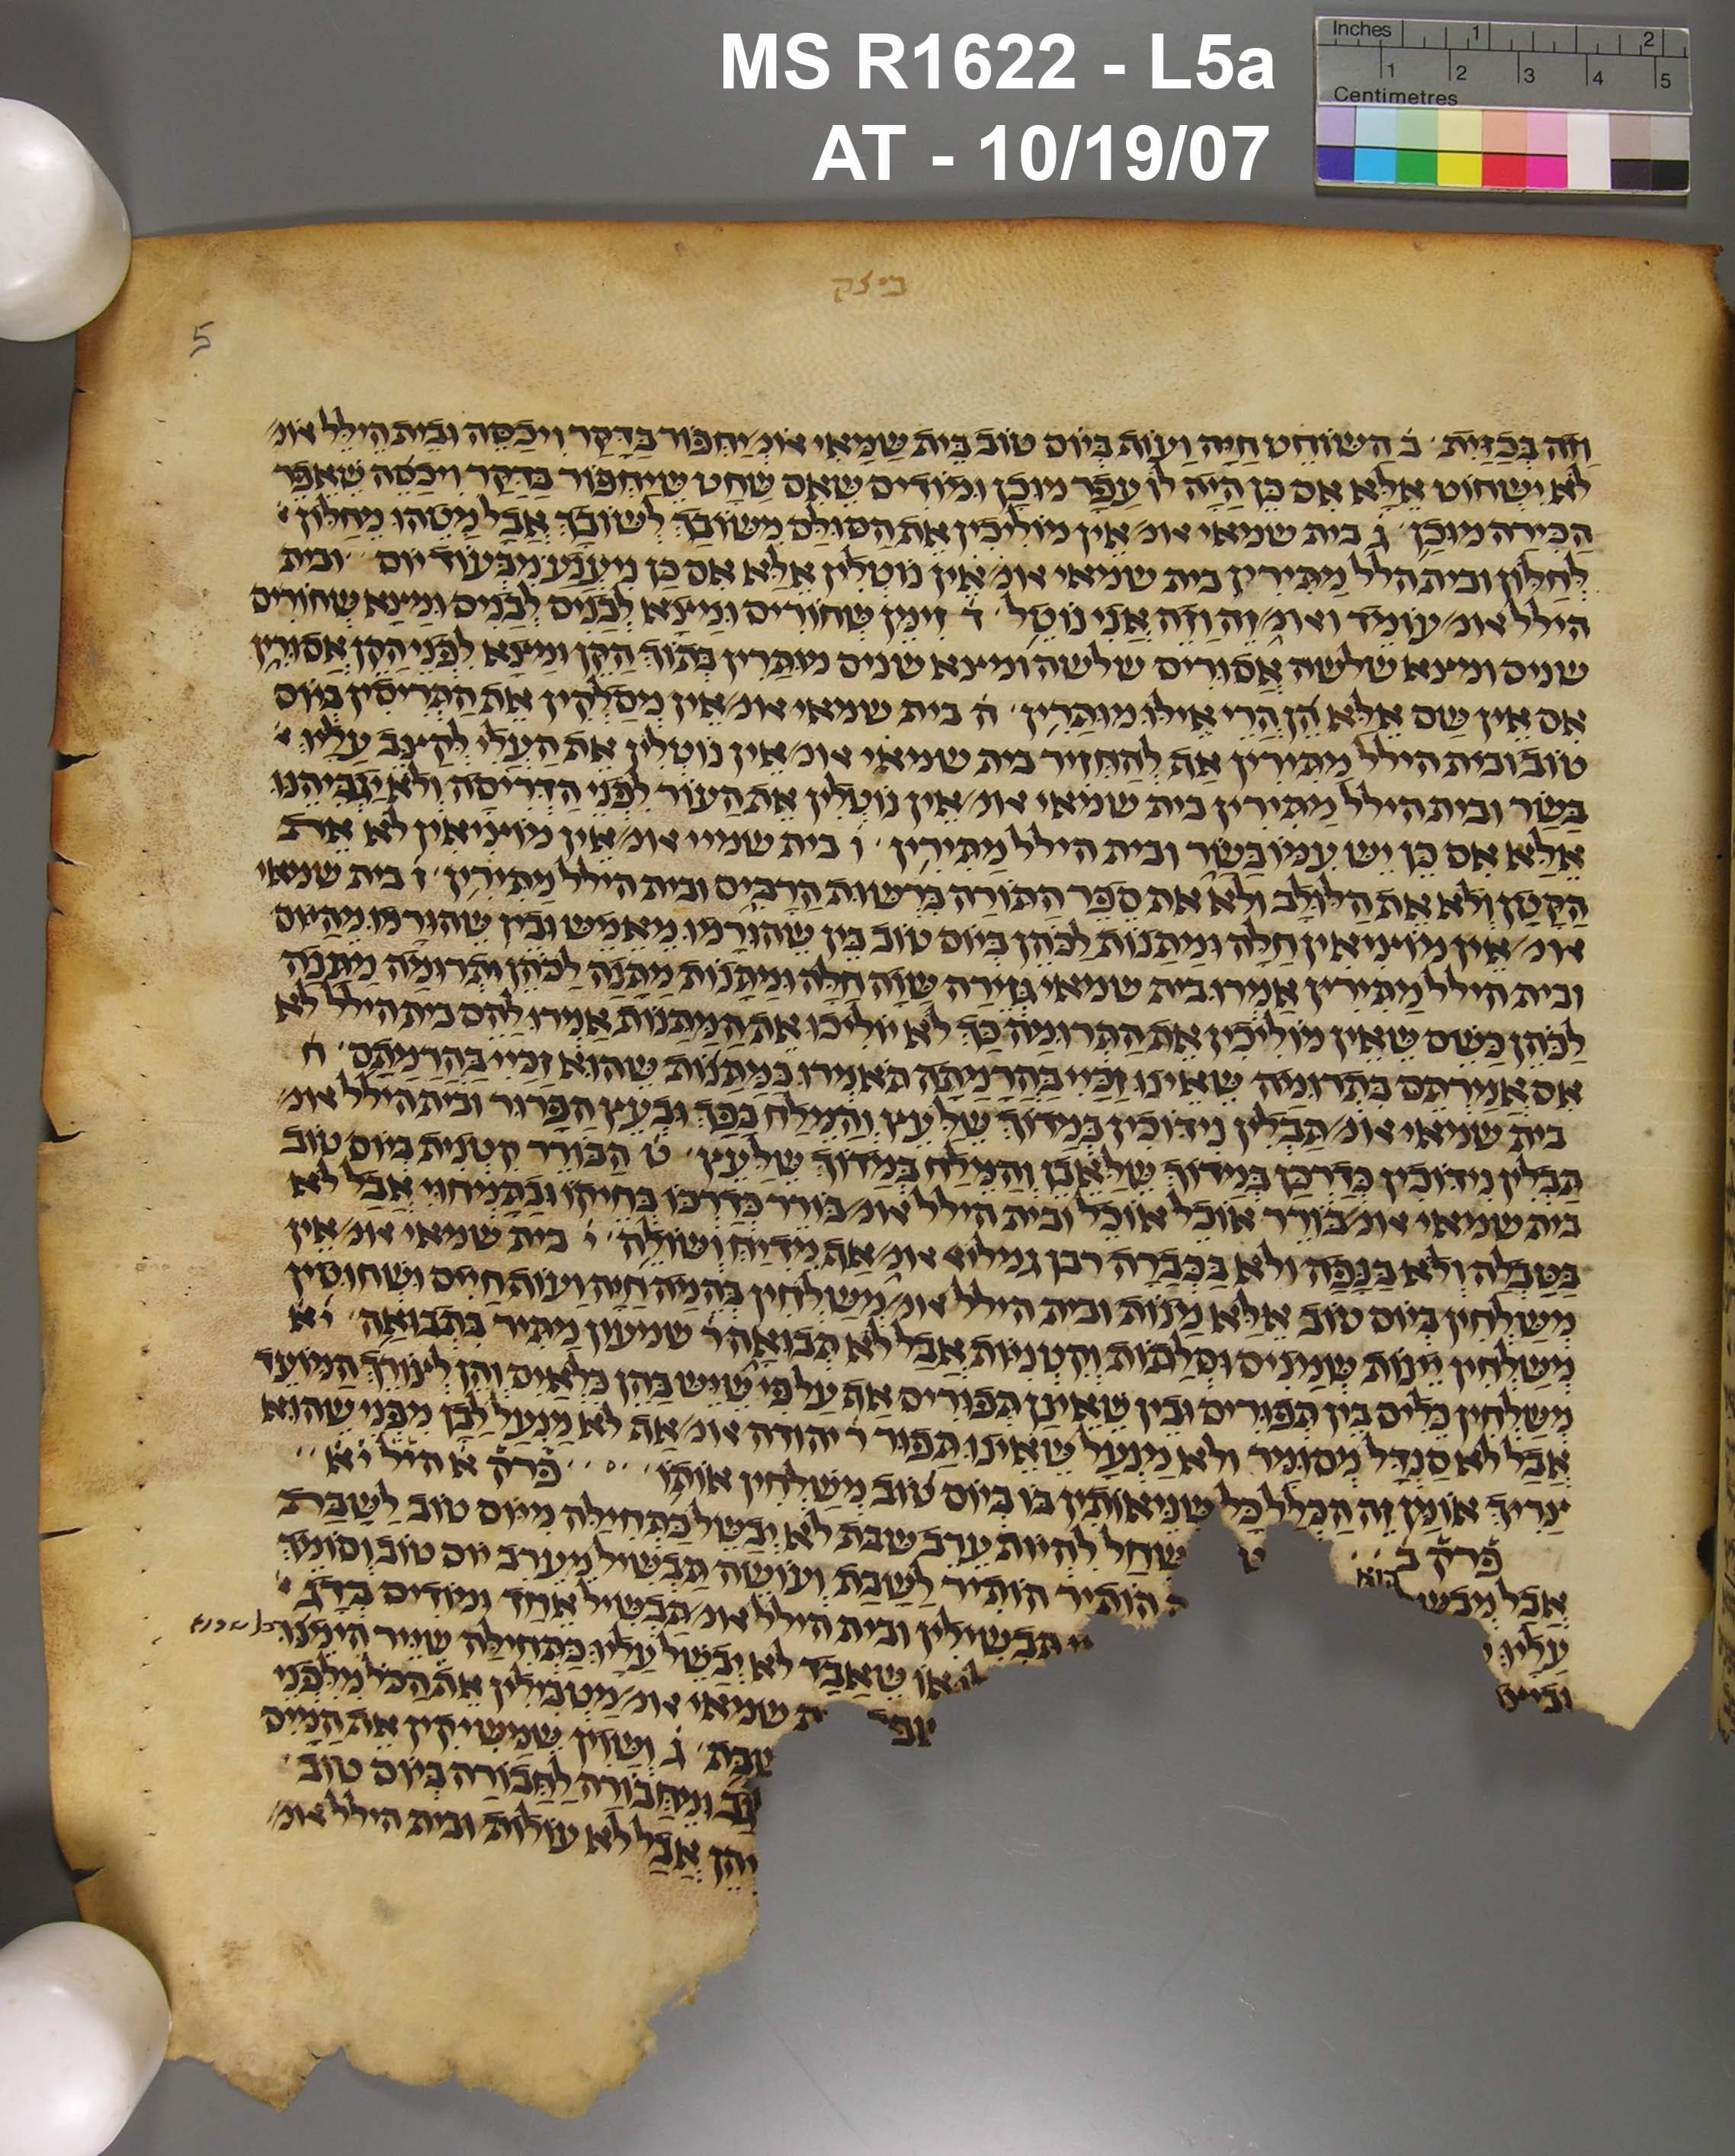 MS R1622 - L5a
AT - 10/19/07
Inches 1 2
1 2 3 4 5
Centimetres
ביצה
5
וזה בכזית ב השוחט חיה ועוף ביום טוב בית שמאי אומ/ יחפור בדקר ויכסה ובית הילל אומ/
לא ישחוט אלא אם כן היה לו עפר מוכן ומודים שאם שחט שיחפור בדקר ויכסה שאפר
הכירה מוכן ג בית שמאי אומ/ אין מוליכין את הסולם משובך לשובך אבל מטהו מחלון
לחלון ובית הלל מתירין בית שמאי אומ/ אין נוטלין אלא אם כן נענע מבעוד יום ובית
הילל אומ/ עומד ואומ/ זה וזה אני נוטל ד זימן שחורים ומצא לבנים לבנים ומצא שחורים
שנים ומצא שלשה אסורים שלשה ומצא שנים מותרין בתוך הקן ומצא לפני הקן אסורין
אם אין שם אלא הן הרי אילו מותרין ה בית שמאי אומ/ אין מסלקין את התריסין ביום
טוב ובית הילל מתירין אף להחזיר בית שמאי אומ/ אין נוטלין את העלי לקצב עליו
בשר ובית הילל מתירין בית שמאי אומ/ אין נוטלין את העור לפני הדריסה ולא יגביהנו
אלא אם כן יש עמו בשר ובית הילל מתירין ו בית שמיי אומ/ אין מוציאין לא את
הקטן ולא את הלולב ולא את ספר התורה ברשות הרבים ובית הילל מתירין ז בית שמאי
אומ/ אין מוציאין חלה ומתנות לכהן ביום טוב בין שהורמו מאמש ובין שהורמו מהיום
ובית הילל מתירין אמרו בית שמאי גזירה שוה חלה ומתנות מתנה לכהן ותרומה מתנה
לכהן כשם שאין מוליכין את התרומה כך לא יוליכו את המתנות אמרו להם בית הילל לא
אם אמרתם בתרומה שאינו זכיי בהרמתה תאמרו במתנות שהוא זכיי בהרמתם ח
בית שמאי אומ/ תבלין נידוכין במדוך של עץ והמלח בפך ובעץ הפרור ובית הילל אומ/
תבלין נידוכין כדרכן במידוך שלאבן והמלח במדוך שלעץ ט הבורר קטנית ביום טוב
בית שמאי אומ/ בורר אוכל אוכל ובית הילל אומ/ בורר כדרכו בחיקו ובתמחוי אבל לא
בטבלה ולא בנפה ולא בכברה רבן גמליא אומ/ אף מדיח ושולה י בית שמאי אומ/ אין
משלחין ביום טוב אלא מנות ובית הילל אומ/ משלחין בהמה חיה ועוף חיים ושחוטין
משלחין יינות שמנים וסלתות וקטניות אבל לא תבואה ר שמעון מתיר בתבואה יא
משלחין כלים בין תפורים ובין שאינן תפורים אף על פי שיש בהן כלאים והן לצורך המועד
אבל לא סנדל מסומר ולא מנעל שאינו תפור ר יהודה אומ/ אף לא מנעל לבן מפני שהוא
צריך אומן זה הכלל כל שניאותין בו ביום טוב משלחין אותו פרק א היל יא
פרק ב שחל להיות ערב שבת לא יבשל כתחילה מיום טוב לשבת
אבל מבשל הוא הותיר הותיר לשבת ועושה תבשיל מערב יום טוב וסומך
עליו תבשילין ובית הילל אומ/ תבשיל אחד ומודים בדג
או שאבד לא יבשל עליו כתחילה שייר הימנו כל שהוא
שמאי אומ/ מטבילין את הכל מלפני
שבת ג ושוין שמשיקין את המים
ומחבורה לחבורה ביום טוב
אבל לא עולות ובית הילל אומ/